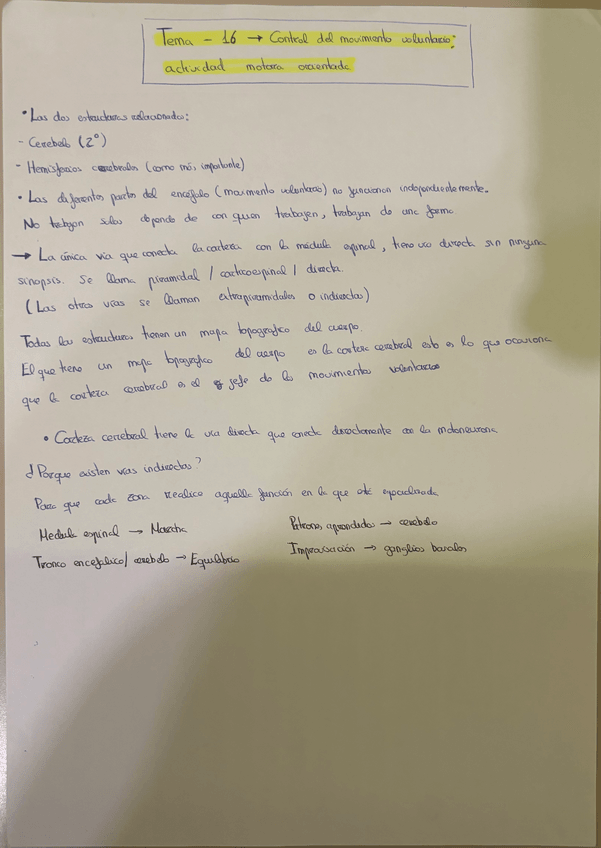 Tema - 16 → Control del movimiento voluntario:
actividad motora orientada
• Las dos estructuras relacionadas:
- Cerebelo (2º)
- Hemisferios cerebrales (como más importante)
• Las diferentes partes del encéfalo (movimiento voluntario) no funcionan independientemente.
No trabajan solas depende de con quien trabajen, trabajan de una forma
→ La única vía que conecta la corteza con la médula espinal, tiene vía directa sin ninguna
sinopsis. Se llama piramidal / corticoespinal / directa.
(Las otras vías se llaman extrapiramidales o indirectas)
Todas las estructuras tienen un mapa topografico del cuerpo.
El que tiene un mapa topografico del cuerpo en la corteza cerebral esto es lo que ocasiona
que la corteza cerebral es el jefe de los movimientos voluntarios
• Corteza cerebral tiene la vía directa que conecta directamente con la motoneurona
¿Porque existen vías indirectas?
Para que cada zona realice aquella función en la que está especializada
Medula espinal → Marcha
Patrones aprendidos → cerebelo
Tronco encefalico/ cerebelo → Equilibrio
Improvisación → ganglios basales